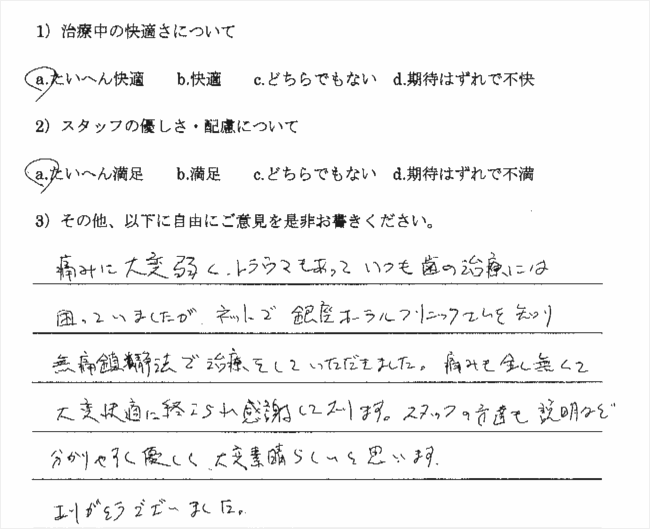 1）治療中の快適さについて
a.たいへん快適　b.快適　c.どちらでもない　d.期待はずれで不快
2）スタッフの優しさ・配慮について
a.たいへん満足　b.満足　c.どちらでもない　d.期待はずれで不満
3）その他、以下に自由にご意見を是非お書きください。
痛みに大変弱く、トラウマもあって いつも歯の治療には
困っていましたが、ネットで 銀座オーラルクリニックさんを知り
無痛鎮静法で治療をしていただきました。痛みも全く無くて
大変快適に終えられ感謝しております。スタッフの方達も説明など
分かりやすく優しく、大変素晴らしいと思います。
ありがとうございました。